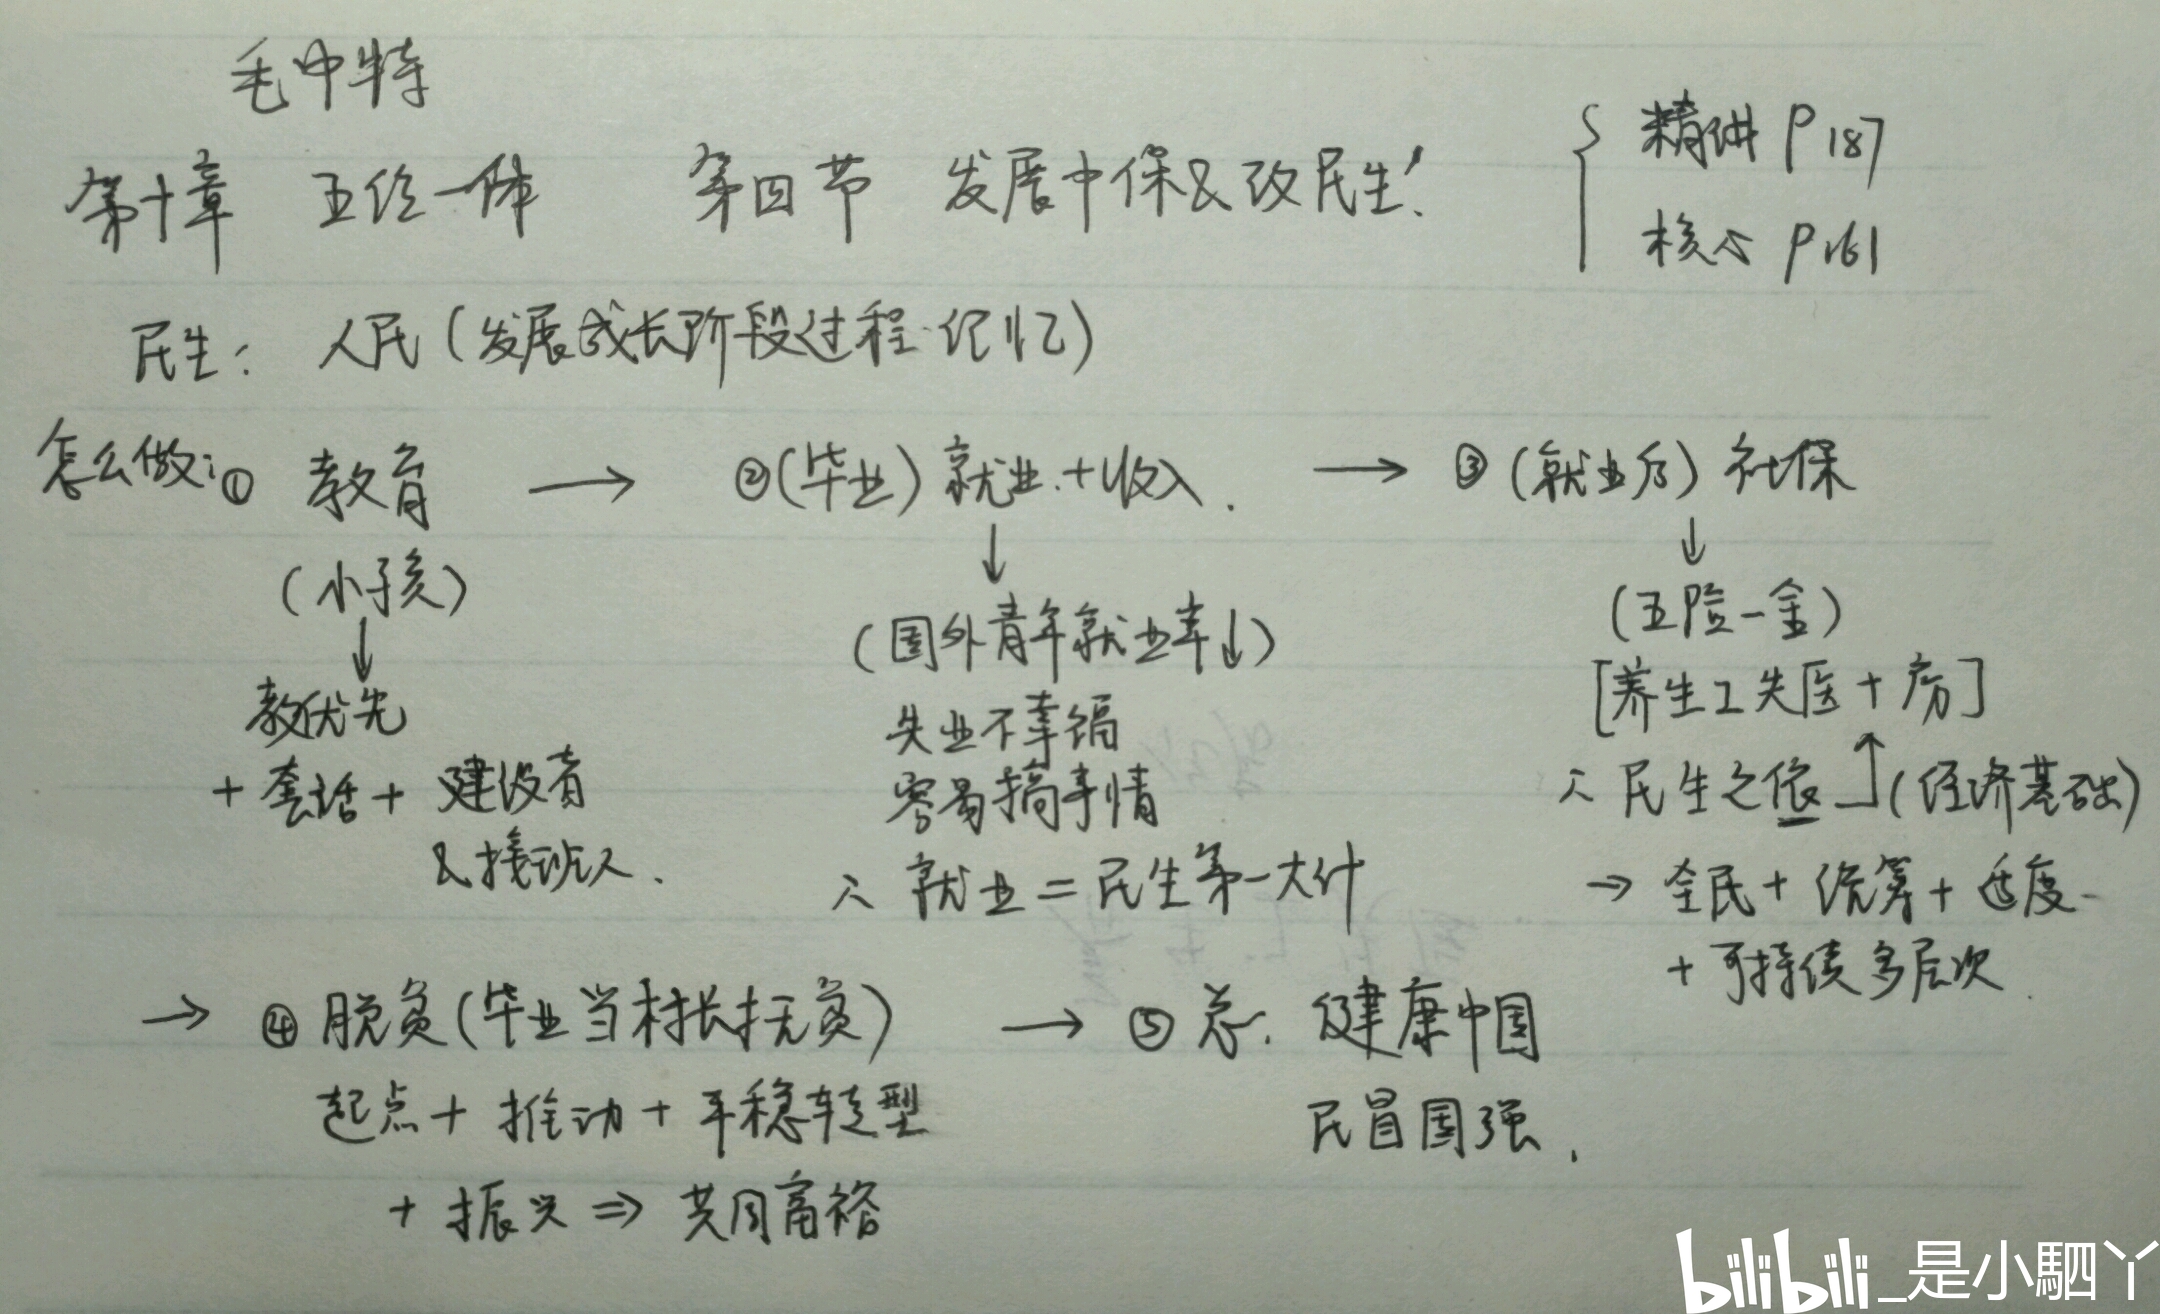 毛中特
第十章 五位一体 第四节 发展中保&改民生!
{ 精讲 P187
核心 P161
民生: 人民(发展成长阶段过程·记忆)
怎么做: ① 教育 → ②(毕业)就业.+收入. → ③(就业后)社保
(小孩)
↓
教优先
+套话+ 建设者
&接班人.
↓
(国外青年就业率↓)
失业不幸福
容易搞事情
∴ 就业=民生第一大计
↓
(五险一金)
[养生工失医+房]
∴ 民生之依 (经济基础)
→ 全民+统筹+适度
+可持续多层次
→ ④ 脱贫(毕业当村长扶贫) → ⑤ 总. 健康中国
起点+推动+平稳转型
+振兴 ⇒ 共同富裕
民冒国强.
bilibili_是小駟丫